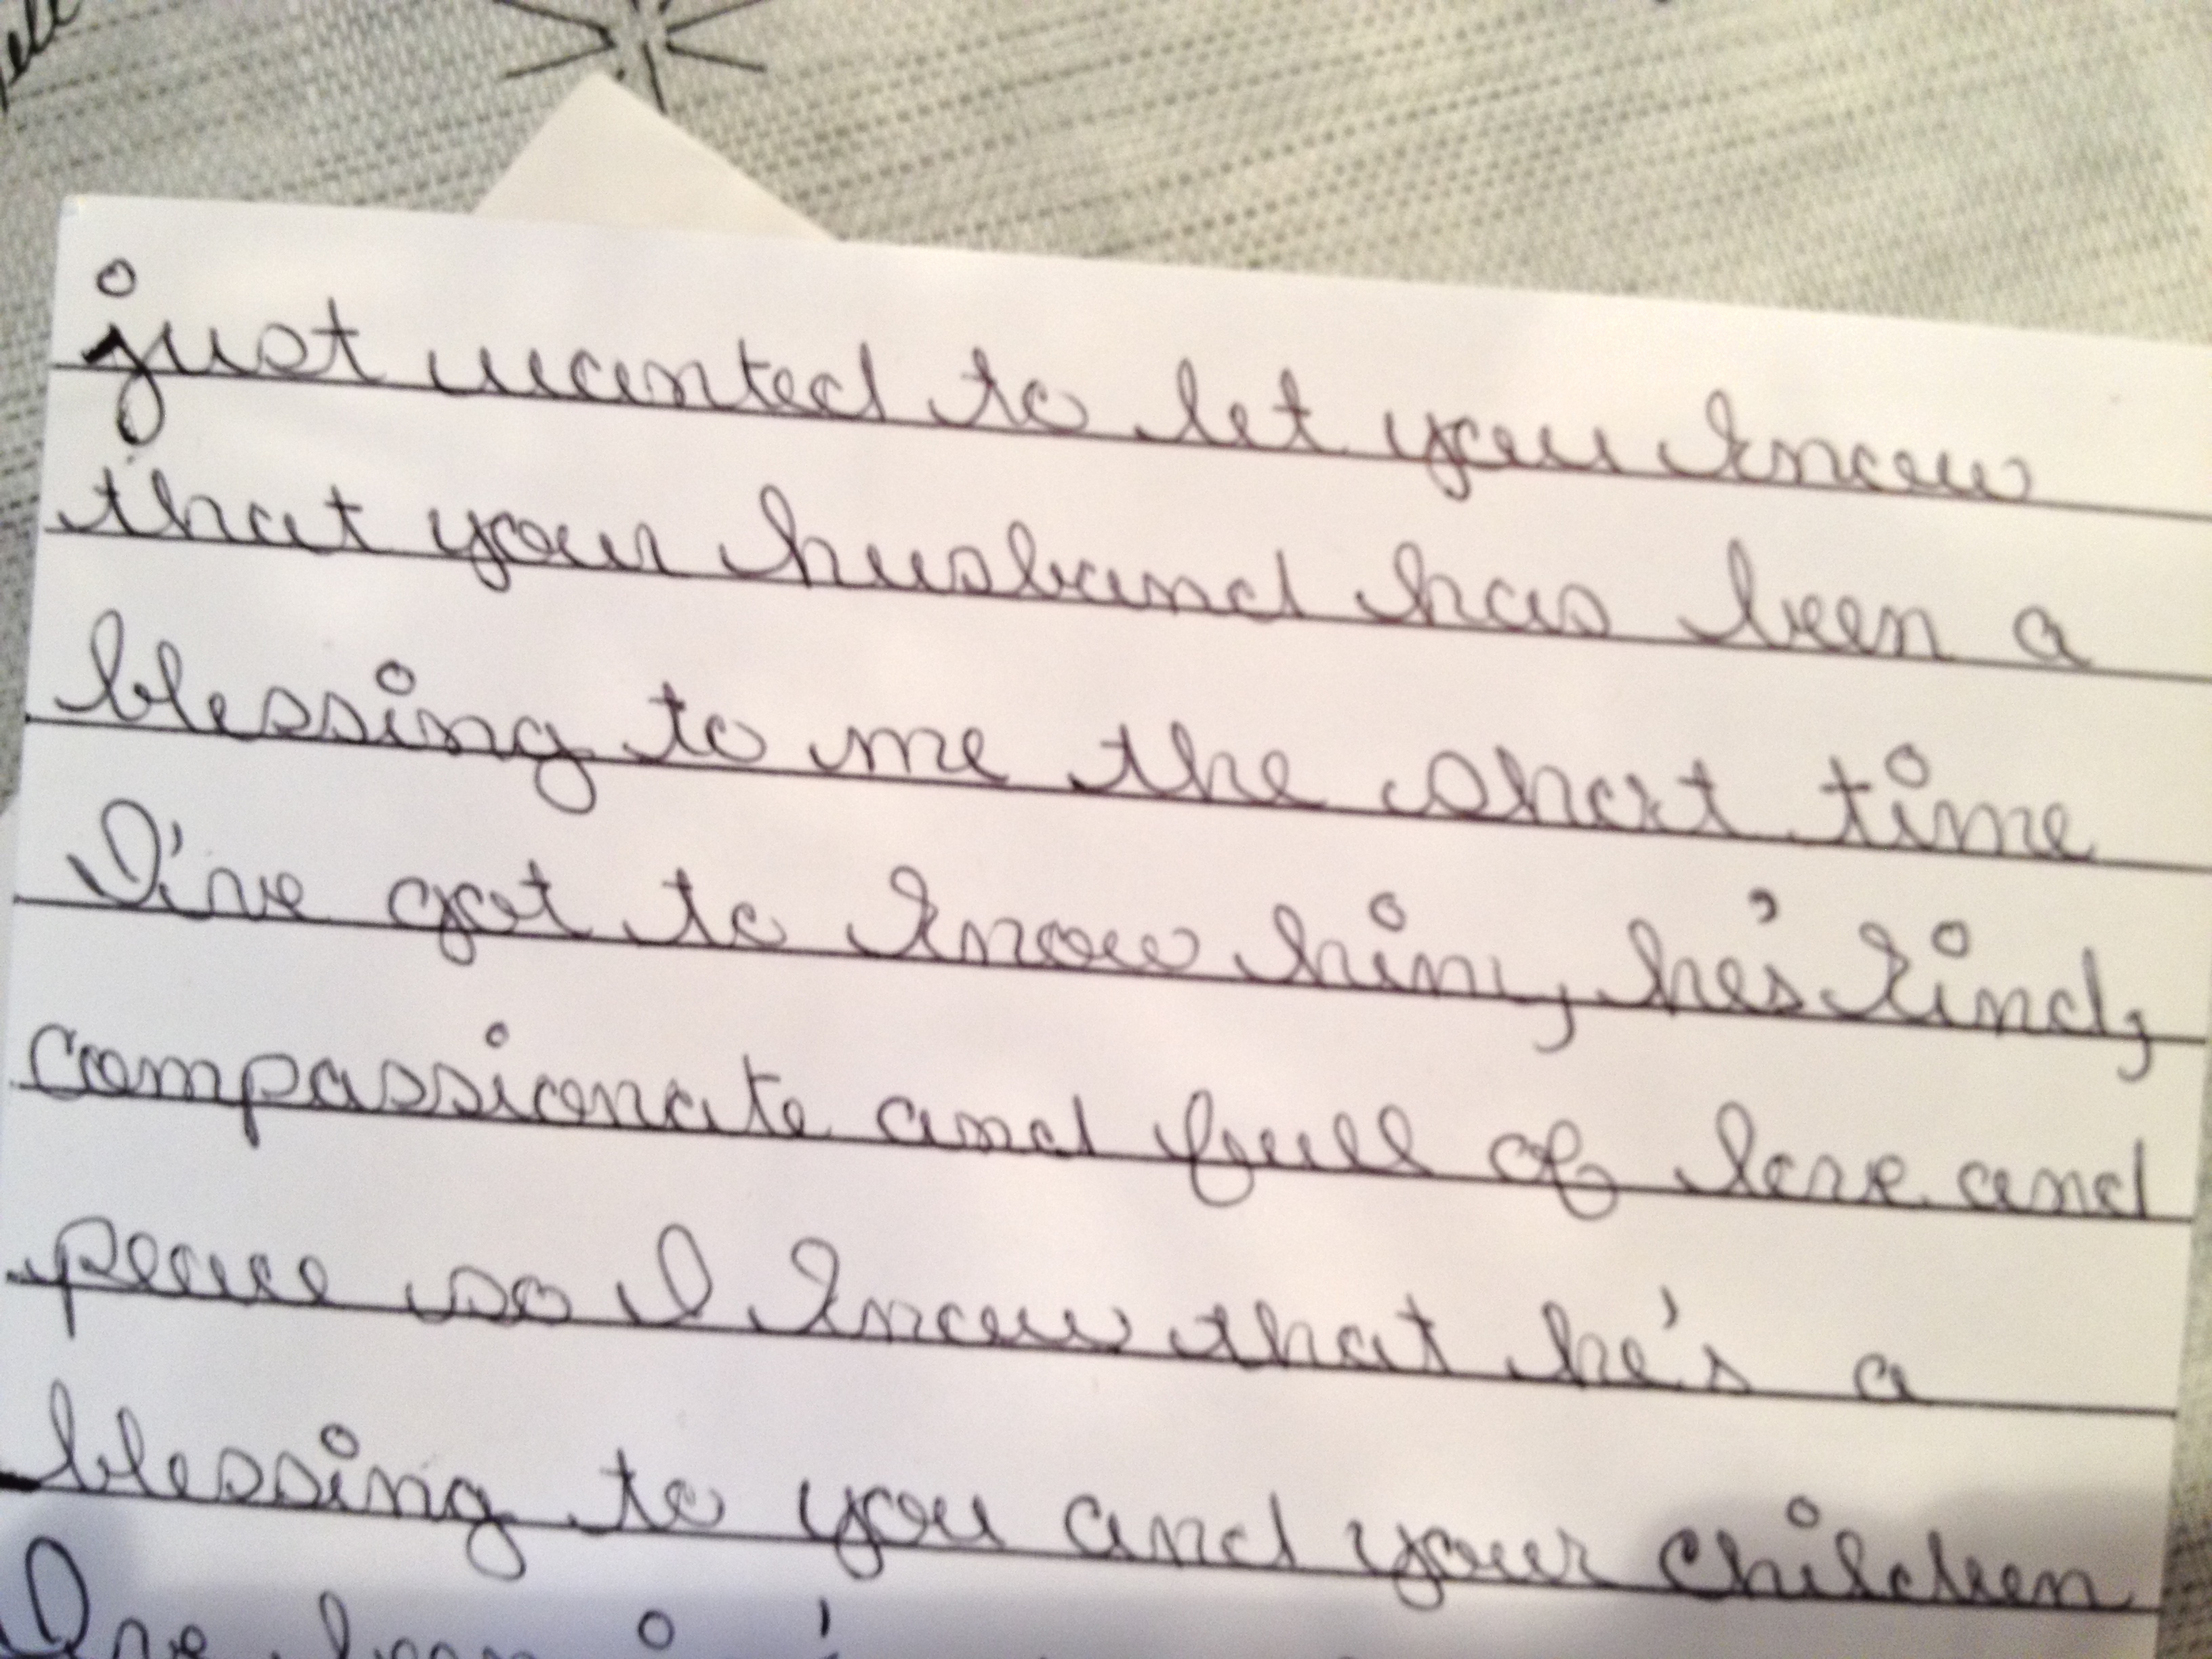 just wanted to let you know
that your husband has been a
blessing to me the short time
I've got to know him, he's kind,
compassionate and full of love and
peace so I know that he's a
blessing to you and your children
I've been